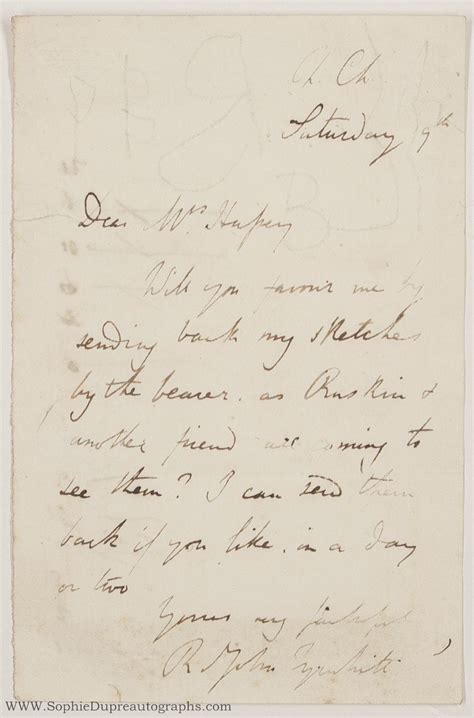 Ch. Ch.
Saturday 9th
Dear Mrs
Will you favour me by
sending back my sketches
by the bearer. as Ruskin &
another friend are coming to
see them? I can send them
back if you like. in a day
or two
Yours my faithful
R St John Tyrwhitt
www.SophieDupreautographs.com